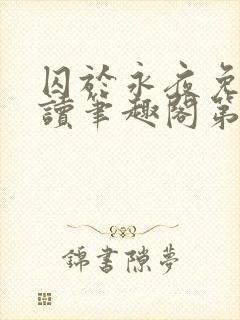 囚於永夜免
讀筆趣閣第
錦書隙夢